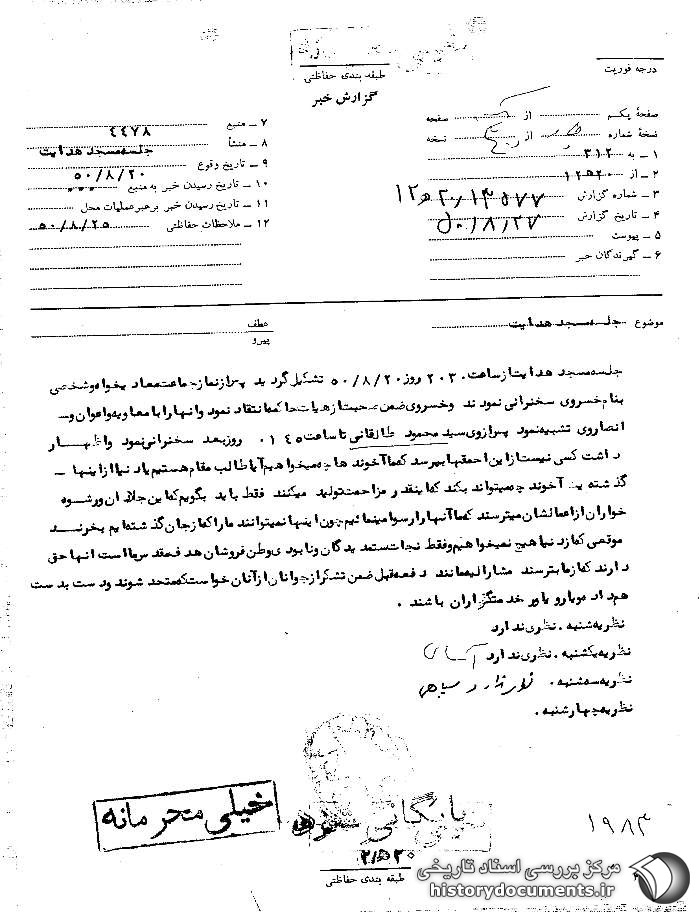 طبقه بندی حفاظتی
گزارش خبر
درجه فوریت
صفحه یکم از صفحه
نسخه شماره از نسخه
۱ ـ به ۳۱۲
۲ ـ از ۲۰ ه‍ ۱۲
۳ ـ شماره گزارش ۱۳۵۷۷ / ۲۰ ه‍ ۱۲
۴ ـ تاریخ گزارش ۵۰/۸/۲۷
۵ ـ پیوست
۶ ـ گیرندگان خبر
۷ ـ منبع ۴۴۷۸
۸ ـ منشأ جلسه مسجد هدایت
۹ ـ تاریخ وقوع ۵۰/۸/۲۰
۱۰ ـ تاریخ رسیدن خبر به منبع
۱۱ ـ تاریخ رسیدن خبر برهبر عملیات محل
۱۲ ـ ملاحظات حفاظتی ۵۰/۸/۲۵
موضوع جلسه مسجد هدایت
عطف
پیرو
جلسه مسجد هدایت از ساعت ۲۰۳۰ روز ۵۰/۸/۲۰ تشکیل گردید پس از نماز جماعت معادیخواه و شخصی
بنام خسروی سخنرانی نمودند و خسروی ضمن صحبت از هیات حاکمه انتقاد نمود و آنها را با معاویه و اعوان و
انصار وی تشبیه نمود پس از وی سید محمود طالقانی تا ساعت ۰۱۴۵ روز بعد سخنرانی نمود و اظهار
داشت کسی نیست از این احمقها بپرسد که ما آخوند ها چه میخواهیم آیا طالب مقام هستیم یا دنیا از اینها ـ
گذشته یک آخوند چه میتواند بکند که اینقدر مزاحمت تولید میکنند فقط باید بگویم که این جلادان و رشوه
خواران از اعمالشان میترسند که ما آنها را رسوا مینمائیم چون اینها نمیتوانند ما را که از جان گذشته ایم بخرند
موقعی که از دنیا هیچ نمیخواهیم و فقط نجات ستمدیدگان و نابودی وطن فروشان هدف مقدس ما است انها حق
دارند که از ما بترسند مشارالیه مانند دفعه قبل ضمن تشکر از جوانان از آنان خواست که متحد شوند و دست بدست
هم داده و یار و یاور خدمتگزاران باشند .
نظریه شنبه . نظری ندارد
نظریه یکشنبه . نظری ندارد
نظریه سه شنبه . نظری ندارد
نظریه چهارشنبه .
خیلی محرمانه
بایگانی
۱۹۸۳
۲۰ ه‍ ۳
طبقه بندی حفاظتی
مرکز بررسی اسناد تاریخی
historydocuments.ir